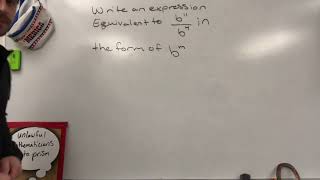 Write an expression
Equivalent to b¹¹/b⁴ in
the form of bⁿ
unlawful
mathematicians
to prism